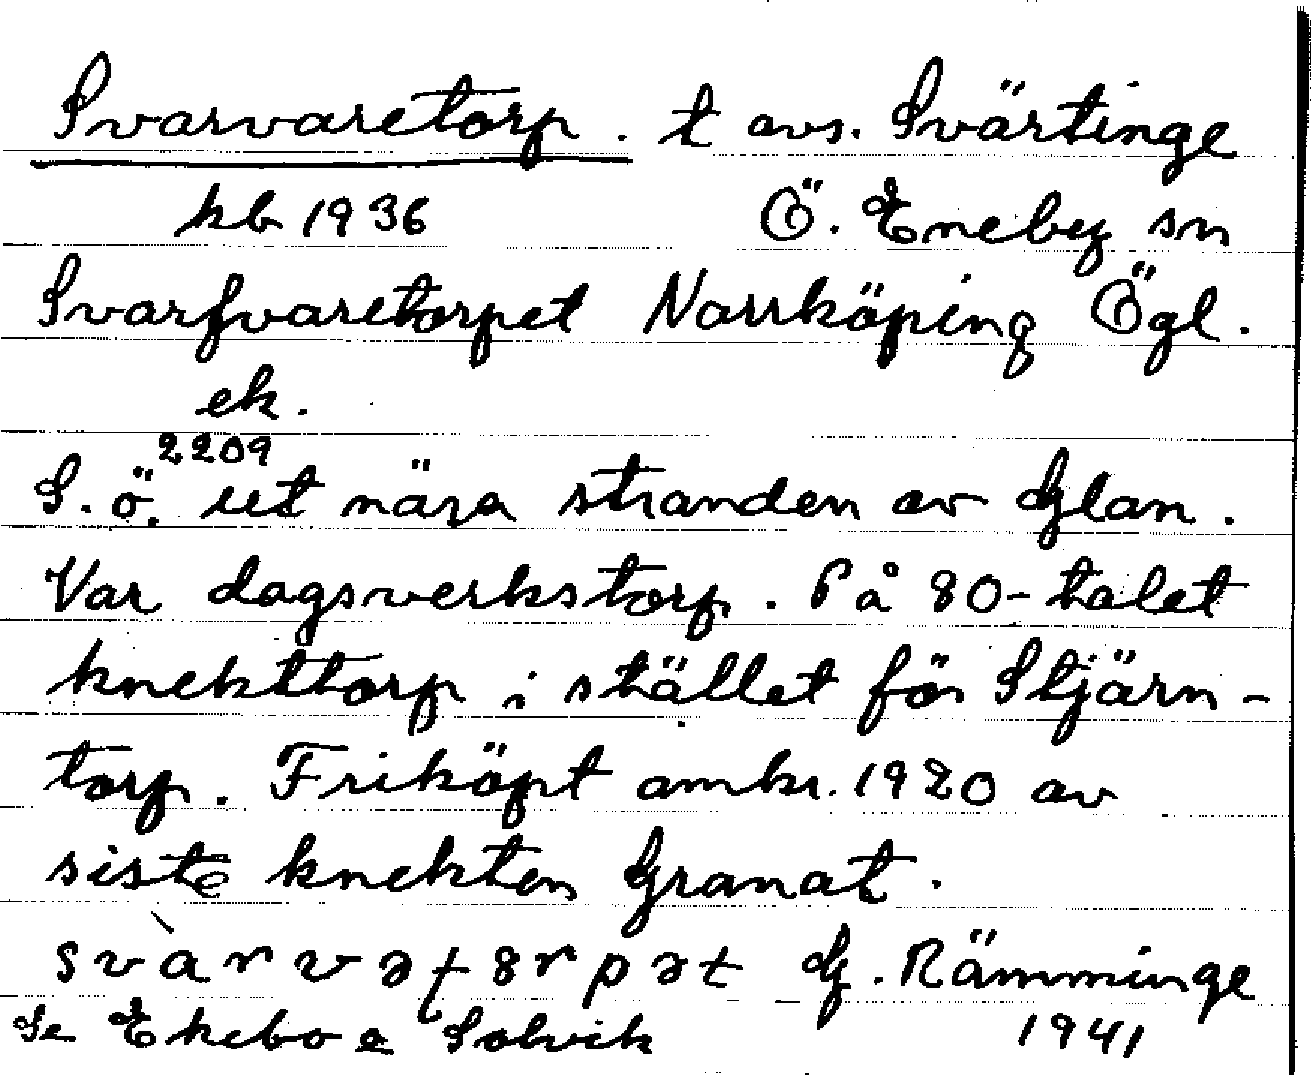 Svarvaretorp. t avs. Svärtinge
kb 1936 Ö. Eneby sn
Svarfvaretorpet Norrköping Ögl.
ek.
2209
S.ö. ut nära stranden av Glan.
Var dagsverkstorp. På 80-talet
knekttorp i stället för Stjärn-
torp. Friköpt omkr. 1920 av
siste knekten Granat.
svàrvətȣrpət G. Rämminge
Se Ekebo o Solvik 1941